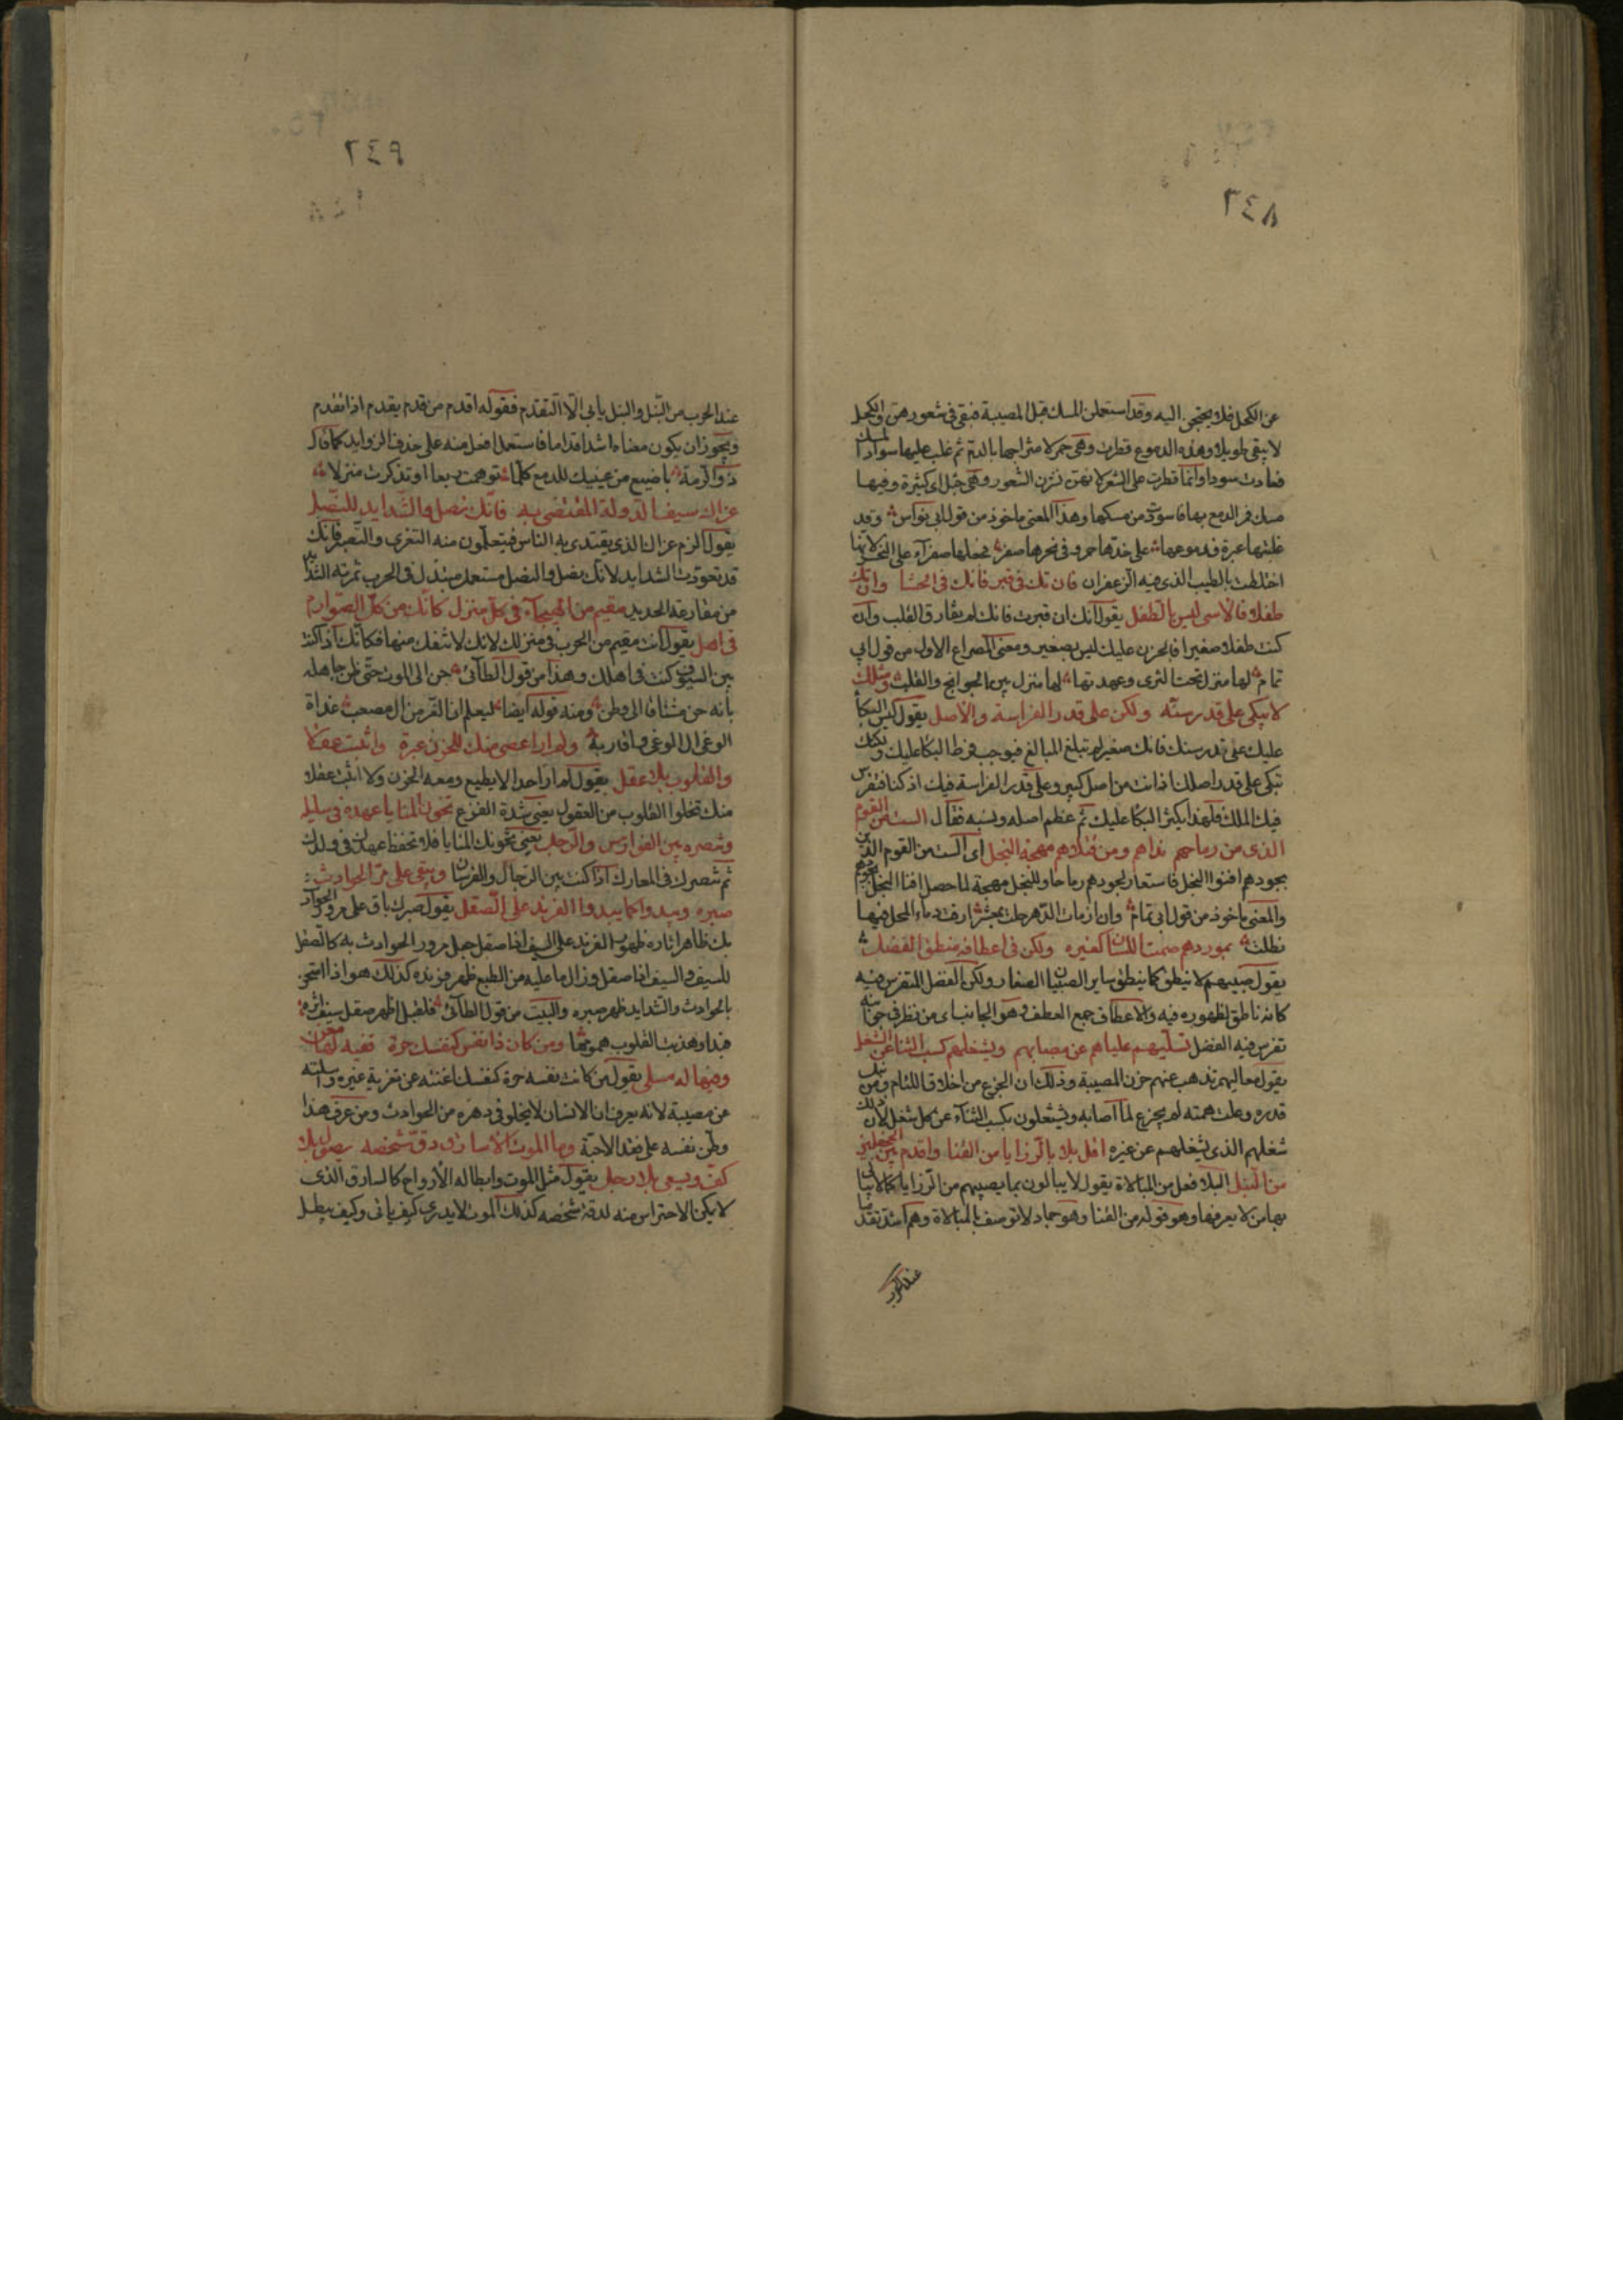 ٢٤٨
عن الكحل فلا يحتجن اليه وقد استعملن المسك قبل المصيبة فبقى فى شعورهن والكحل
لا يبقى طويلا وهذه الدموع قطرت وهى حمر لامتزاجها بالدم ثم غلب عليها سواد المسك
فعادت سودا وانما قطرت على الشعر لانهن نشرن الشعور وهى جثل اى كثيرة وفيها
مسك فمر الدمع بها فاسود من مسكها وهذا المعنى ماخوذ من قول ابى نواس وقد
غلبتها عبرة فدموعها على خدها حمر وفى نحرها صفر فجعلها صفراء على النحر لانها
اختلطت بالطيب الذى فيه الزعفران فان تك فى قبر فانك فى الحشا وان تك
طفلا فالاسى ليس بالطفل يقول انك ان قبرت فانك لم تفارق القلب وان
كنت طفلا صغيرا فالحزن عليك ليس بصغير ومعنى المصراع الاول من قول ابى
تمام لها منزل تحت الثرى وعهدتها لها منزل بين الجوانح والقلب ومثلك
لا يبكى على قدر سنه ولكن على قدر الفراسة والاصل يقول ليس البكا
عليك على قدر سنك فانك صغير لم تبلغ المبالغ فيوجب فرط البكا عليك ولكنك
تبكى على قدر اصلك فانت من اصل كبير وعلى قدر الفراسة فيك اذ كنا نتفرس
فيك الملك فلهذا يكثر البكا عليك ثم عظم اصله ونسبه فقال الست من القوم
الذى من رماحهم نداهم ومن قتلاهم مهجة البخل اى الست من القوم الذين
بجودهم افنوا البخل فاستعار لجودهم رماحا وللبخل مهجة لما حصل افنا البخل بجودهم
والمعنى ماخوذ من قول ابى تمام وان ازمات الدهر حلت بمعشر ارقت دماء المحل فيها
فطلت بمولودهم صمت اللسان كغيره ولكن فى اعطافه منطق الفضل
يقول صبيهم لا ينطق كما ينطق ساير الصبيان الصغار ولكن الفضل المتفرس فيه
كانه ناطق لظهوره فيه والاعطاف جمع العطف وهو الجانب اى من نظر فى جوانبه
تفرس فيه الفضل تسليهم علياهم عن مصابهم ويشغلهم كسب الثنا عن الشغل
يقول معاليهم تذهب عنهم حزن المصيبة وذلك ان الجزع من اخلاق اللئام ومن نبل
قدره وعلت همته لم يجزع لما اصابه ويشتغلون بكسب الثناء عن كل شغل لان ذلك
شغلهم الذى يشغلهم عن غيره اقل بلا بالرزايا من القنا واقدم بين الجحفلين
من النبل البلا فعل من المبالاة يقول لا يبالون بما يصيبهم من الرزايا كما لا يبالى
بها من لا يعرفها وهو قوله من القنا وهو جماد لا توصف بالمبالاة وهم اشد تقدما
عند الحرب
٢٤٩
عند الحرب من النبل والنبل يابى الا التقدم فقوله اقدم من قدم يقدم اذا تقدم
ويجوز ان يكون معناه اشد اقداما فاستعمل افعل منه على حذف الزوايد كما قال
ذو الرمة باضيع من عينيك للدمع كلما توهمت ربعا او تذكرت منزلا
عزاك سيف الدولة المقتضى به فانك نصل والشدايد للنصل
يقول الزم عزاك الذى يقتدى به الناس فيتعلمون منه التعزى والتصبر فانك
قد تعودت الشدايد لانك نصل والنصل مستعمل مبتذل فى الحرب ثم تنه الشد
من مقارعة الحديد مقيم من الهيجاء فى كل منزل كانك من كل الصوارم
فى اهل يقول انت مقيم من الحرب فى منزلك لانك لا تنفك منها فكانك اذا كنت
بين السيوف كنت فى اهلك وهذا من قول الطائى حن الى الموت حتى ظن جاهله
بانه حن مشتاقا الى وطن ومنه قوله ايضا ليعلم ان الغر من ال مصعب غداة
الوغى ال الوغى واقاربه ولم ار اعصى منك للحزن عبرة واثبت عقلا
والقلوب بلا عقل يقول لم ار احدا لا يطيع دمعه الحزن ولا اثبت عقلا
منك تخلوا القلوب من العقول يعنى شدة الفزع تخون المنايا عهده فى سليله
وتنصره بين الفوارس والرجل يعنى تخونك المنايا فلا تحفظ عهدك فى ولدك
ثم تنصرك فى المعارك اذا كنت بين الرجال والفرسان ويبقى على مر الحوادث
صبره ويبدوا كما يبدوا الفرند على الصقل يقول صبرك باق على مرور الحوادث
بك ظاهر اثاره ظهور الفرند على السيف اذا صقل جعل مرور الحوادث به كالصقل
للسيف والسيف اذا صقل وزال ما عليه من الطبع ظهر فرنده كذلك هو اذا امتحن
بالحوادث والشدايد ظهر صبره والبيت من قول الطائى فلقبل اظهر صقل سيف اثره
فبدا وهذبت القلوب همومها ومن كان ذا نفس كنفسك حرة ففيه لها مغن
وفيها له مسلى يقول من كانت نفسه حرة كنفسك اغنته عن تعزية غيره وسلته
عن مصيبة لانه يعرف ان الانسان لا يخلو فى دهره من الحوادث ومن عرف هذا
وطن نفسه على فقد الاحبة وما الموت الا سارق دق شخصه يصول بلا
كف ويسعى بلا رجل يقول مثل الموت وابطاله الارواح كالسارق الذى
لا يمكن الاحتراس منه لدقة شخصه كذلك الموت لا يدرى كيف ياتى وكيف يبطل